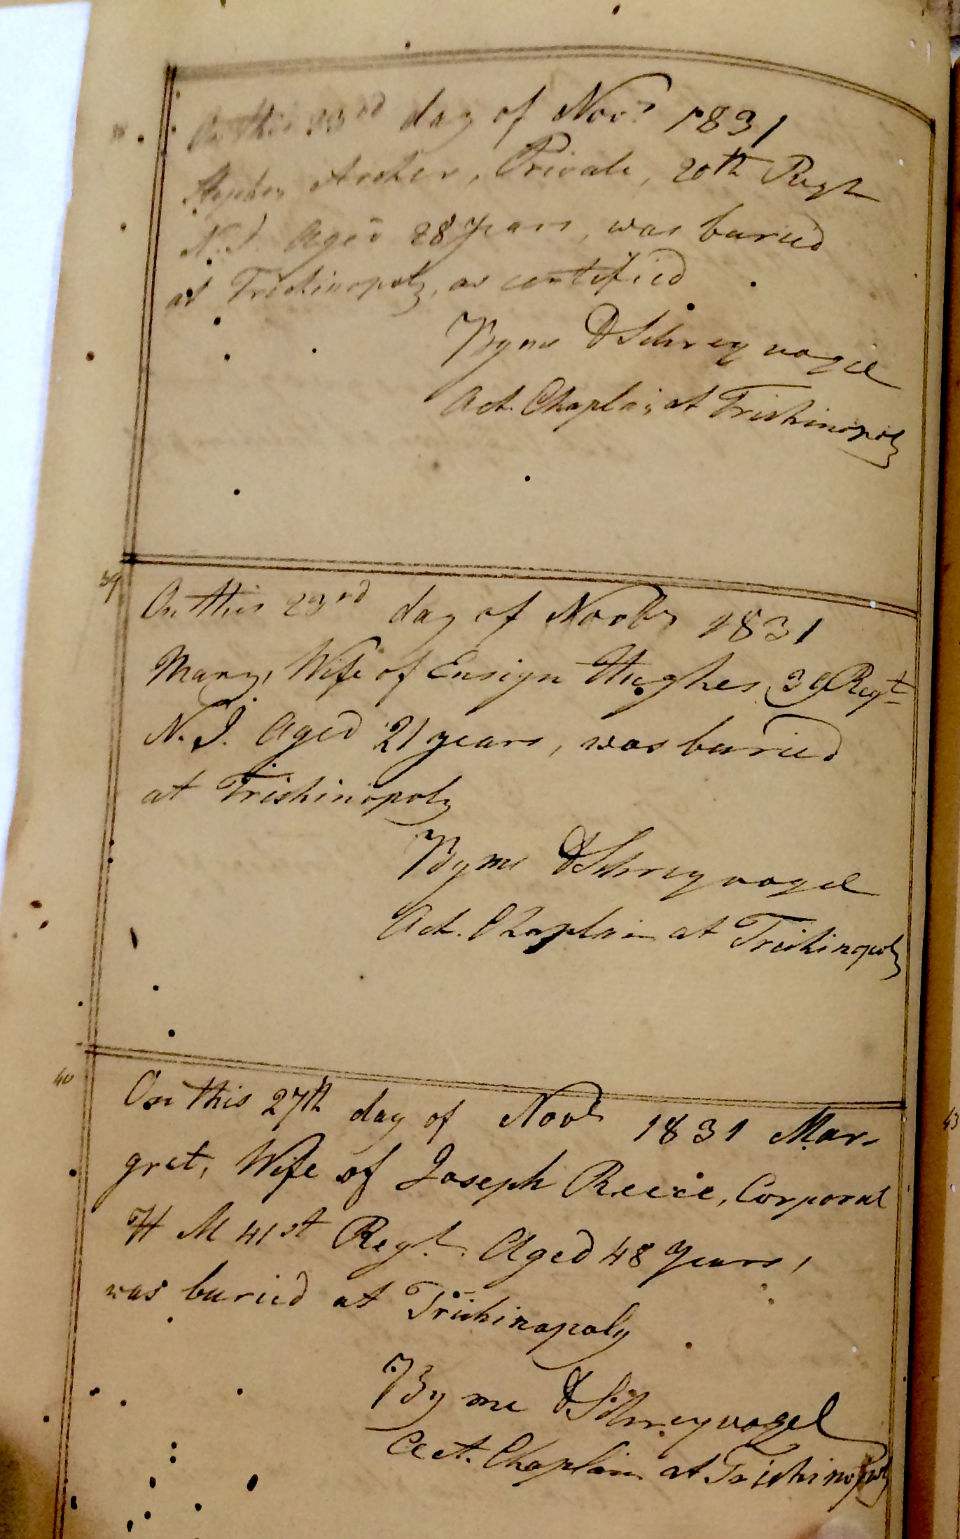 On this 23rd day of Novr 1831
Stephen Archer, Private, 20th Regt
N.I. Aged 28 Years, was buried
at Trichinopoly, as certified
By me D Schreyvogel
Act. Chaplain at Trichinopoly
39
On this 23rd day of Novbr 1831
Mary, Wife of Ensign Hughes, 39 Regt
N.I. Aged 21 years, was buried
at Trichinopoly
By me D Schreyvogel
Act. Chaplain at Trichinopoly
40
On this 27th day of Novbr 1831 Mar-
gret, Wife of Joseph Reece, Corporal
H M 41st Regt. Aged 48 Years,
was buried at Trichinopoly
By me D Schreyvogel
Act. Chaplain at Trichinopoly
43